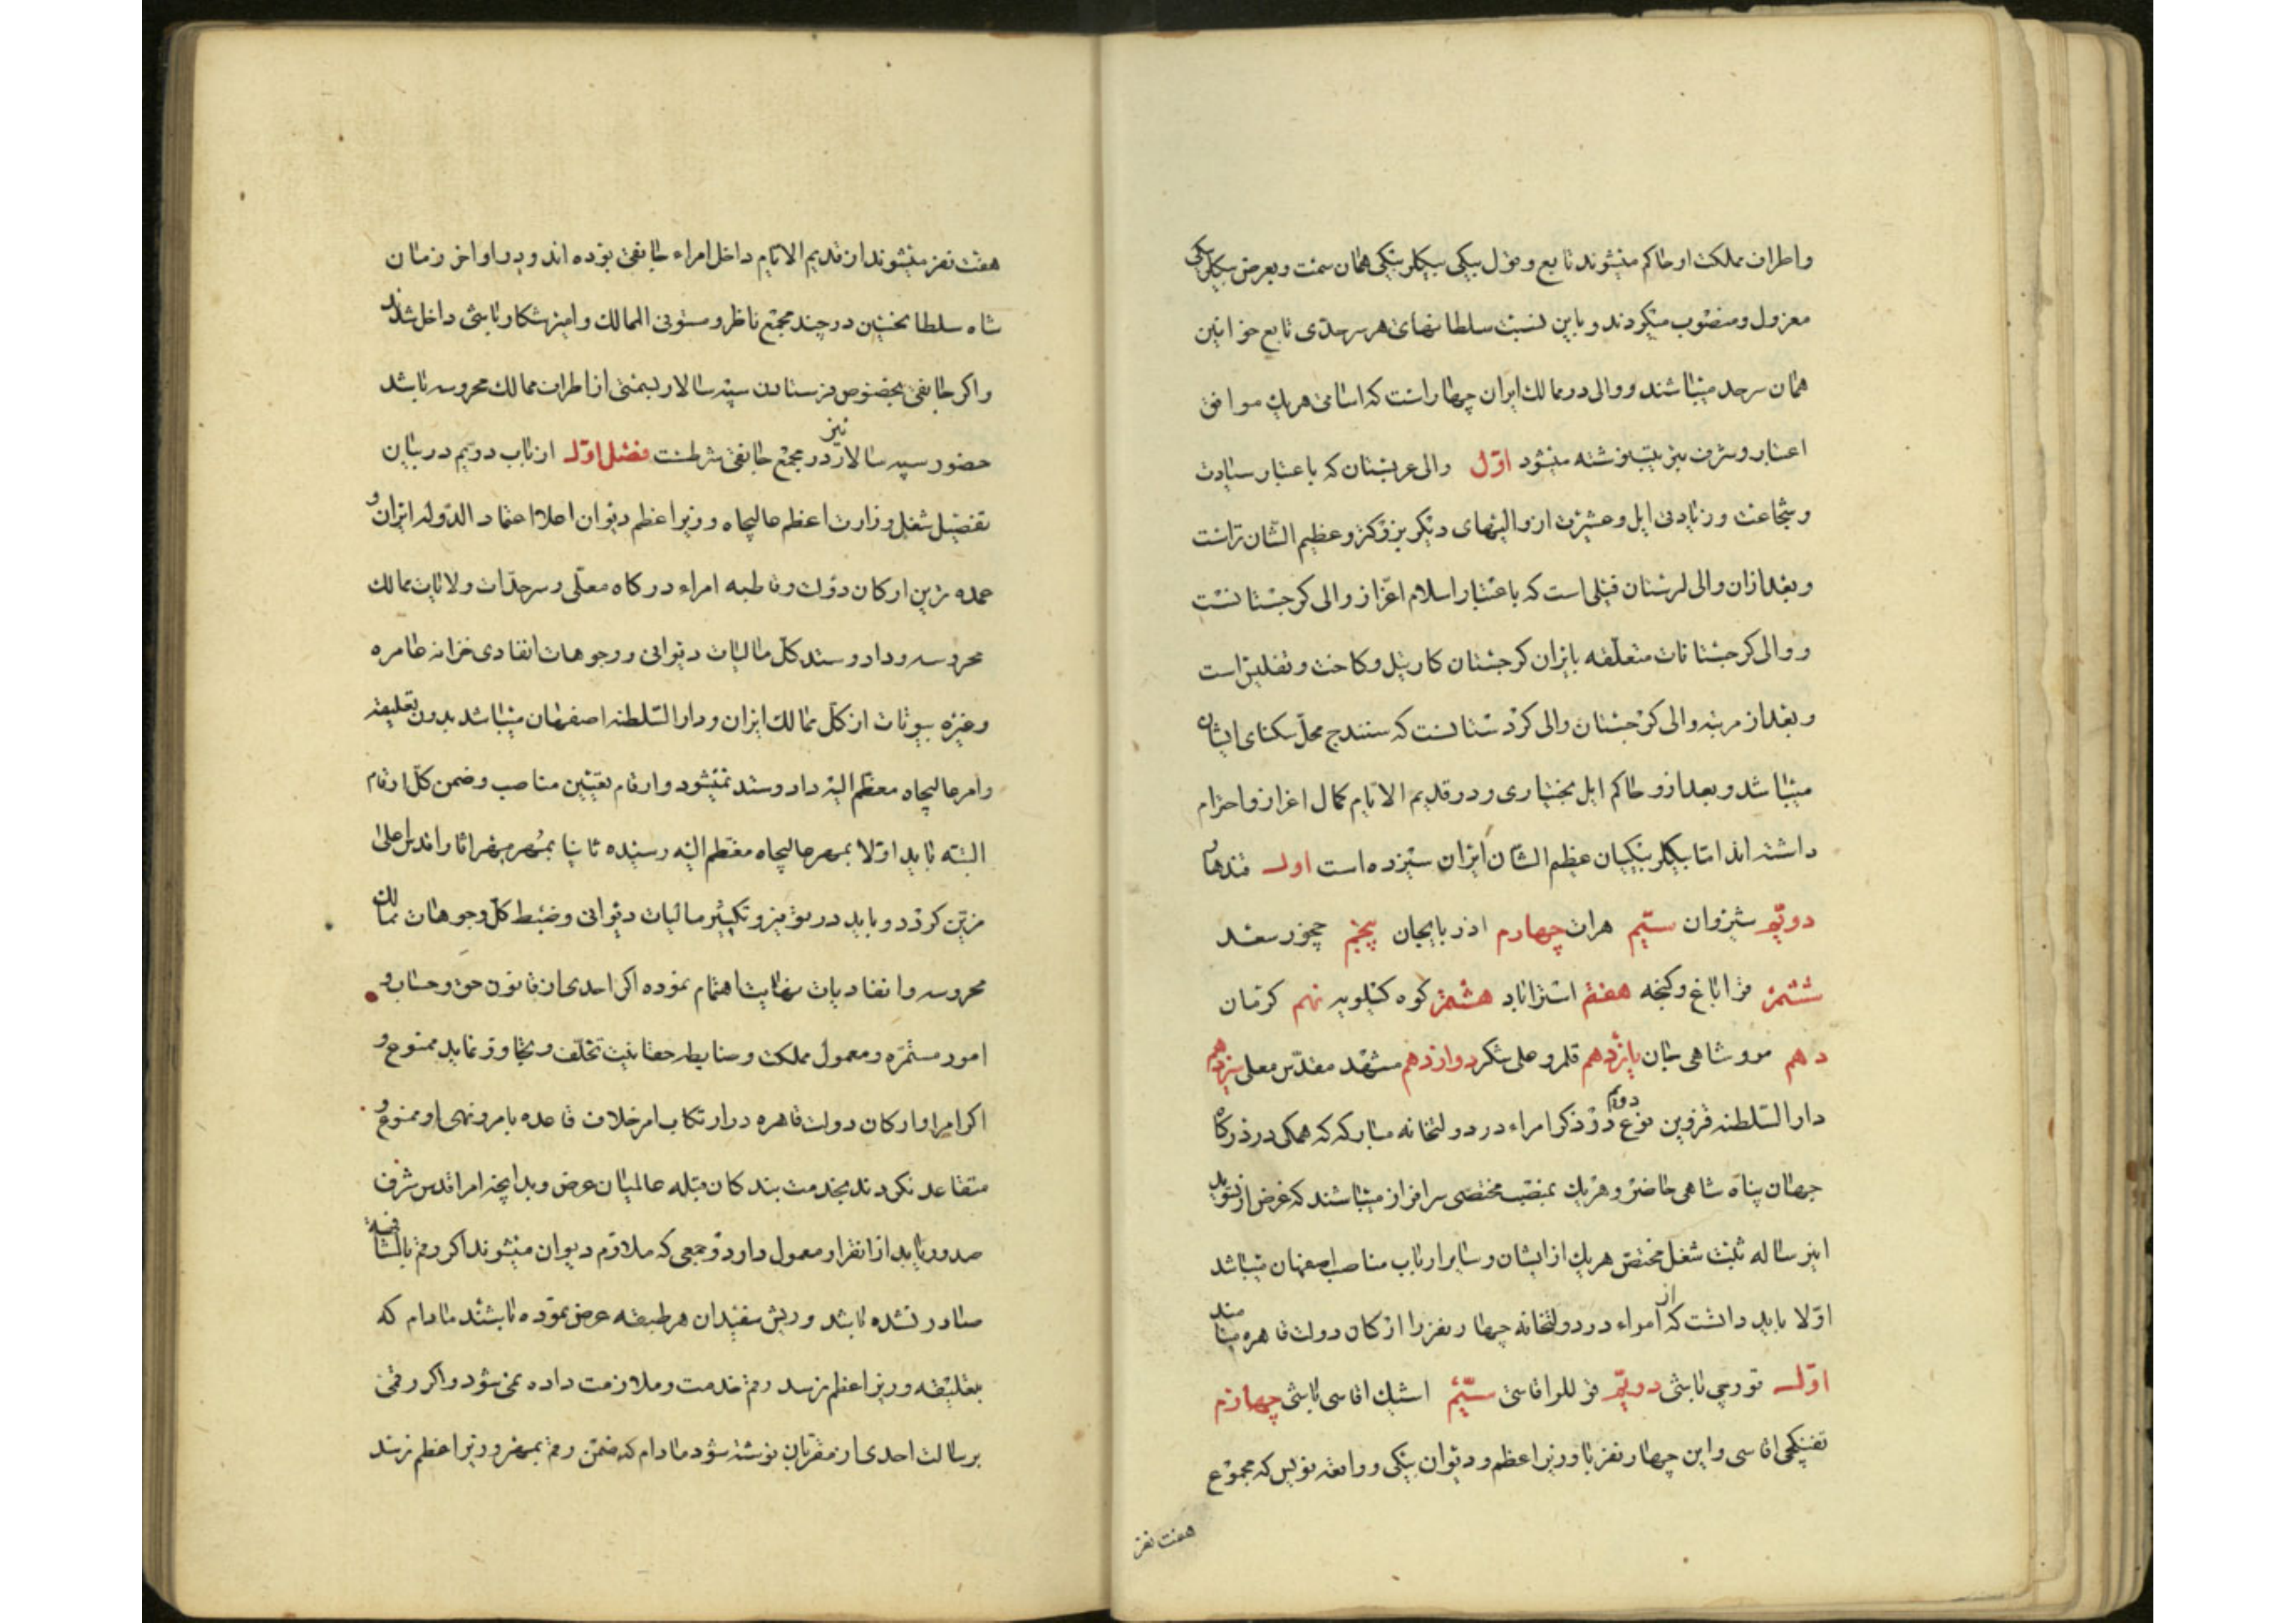 واطراف مملکت او حاکم میشوند تابع و قول بیکی بیکلربیکی همان سمت و بعرض بیکلربیکی
معزول و منصوب میکردند و باین نسبت سلطانهای هر سرحدی تابع خوانین
همان سرحد میباشند و والی در ممالک ایران چهار است که اسامی هریک موافق
اعتبار و شرف بترتیب نوشته میشود اوّل والی عربستان که باعتبار سیادت
و شجاعت و زیادتی ایل و عشیرت از والیهای دیکر بزرکتر و عظیم الشان تراست
و بعد ازان والی لرستان فیلی است که باعتبار اسلام اعّز از والی کرجستانست
و والی کرجستانات متعلّقه بایران کرجستان کارتیل و کاخت و تفلیس است
و بعد از مرتبه والی کرجستان والی کردستانست که سنندج محلّ سکنای ایشان
میباشد و بعد ازو حاکم ایل بختیاری و در قدیم الایّام کمال اعزاز و احترام
داشته اند امّا بیکلربیکیان عظیم الشان ایران سیزده است اول قندهار
دویّم شیروان سیّم هرات چهارم اذربایجان پنجم چخور سعد
ششم قراباغ و کنجه هفتم استراباد هشتم کوه کیلویه نهم کرمان
دهم مرو شاهی جان یازدهم قلمرو علی شکر دوازدهم مشهد مقدّس معلی سیزدهم
دار السّلطنه قزوین نوع دویم در ذکر امراء در دولتخانه مبارکه که همکی در درکاه
جهان پناه شاهی حاضر و هریک بمنصب مختصی سرافراز میباشند که غرض از تسوید
این رساله ثبت شغل مختص هریک از ایشان و سایر ارباب مناصب اصفهان میباشد
اوّلا باید دانست که از امراء در دولتخانه چهار نفر را ارکان دولت قاهره مینامند
اوّل قورچی باشی دویّم قوللراقاسی سیّم اشیک اقاسی باشی چهارم
تفنکچی اقاسی و این چهار نفر با وزیر اعظم و دیوان بیکی و واقعه نویس که مجموع
هفت نفر
هفت نفر میشوند از قدیم الایّام داخل امراء جانقی بوده اند و در اواخر زمان
شاه سلطانحسین در چند مجمع ناظر و مستوفی الممالک و امیر شکار باشی داخل شدند
و اکر جانقی بخصوص فرستادن سپه سالار بسمتی از اطراف ممالک محروسه باشد
حضور سپه سالار نیز در مجمع جانقی شرطست فصل اوّل از باب دویم در بیان
تفصیل شغل وزارت اعظم عالیجاه وزیر اعظم دیوان اعلا اعتماد الدّوله ایران و
عمده ترین ارکان دولت و قاطبه امراء درکاه معلّی و سرحدّات و ولایات ممالک
محروسه و داد و ستد کلّ مالیات دیوانی و وجوهات انفادی خزانه عامره
و غیره بیوتات از کلّ ممالک ایران و دار السّلطنه اصفهان میباشد بدون تعلیقه
و امر عالیجاه معظّم الیه داد و ستد نمیشود و ارقام تعیین مناصب و ضمن کلّ ارقام
البته باید اوّلا بمهر عالیجاه معظّم الیه رسیده ثانیا بمهر مهر اثار اقدس اعلی
مزیّن کردد و باید در توفیر و تکثیر مالیات دیوانی و ضبط کلّ وجوهات ممالک
محروسه و انفادیات نهایت اهتمام نموده اکر احدی از قانون حق و حساب و
امور مستمرّه و معمول مملکت و ضابطه حقانیت تخلّف و تجاوز نماید ممنوع و
اکر امرا و ارکان دولت قاهره در ارتکاب امر خلاف قاعده بامر و نهی او ممنوع و
متقاعد نکردند بخدمت بندکان قبله عالمیان عرض و بدانچه امر اقدس شرف
صدور یابد از انقرار معمول دارد و جمعی که ملازم دیوان میشوند اکر رقم بالمشافهه
صادر نشده باشد و ریش سفیدان هر طبقه عرض نموده باشند مادام که
بتعلیقه وزیر اعظم نرسد رقم خدمت و ملازمت داده نمی شود و اکر رقمی
برسالت احدی از مقرّبان نوشته شود مادام که ضمن رقم بمهر وزیر اعظم نرسد